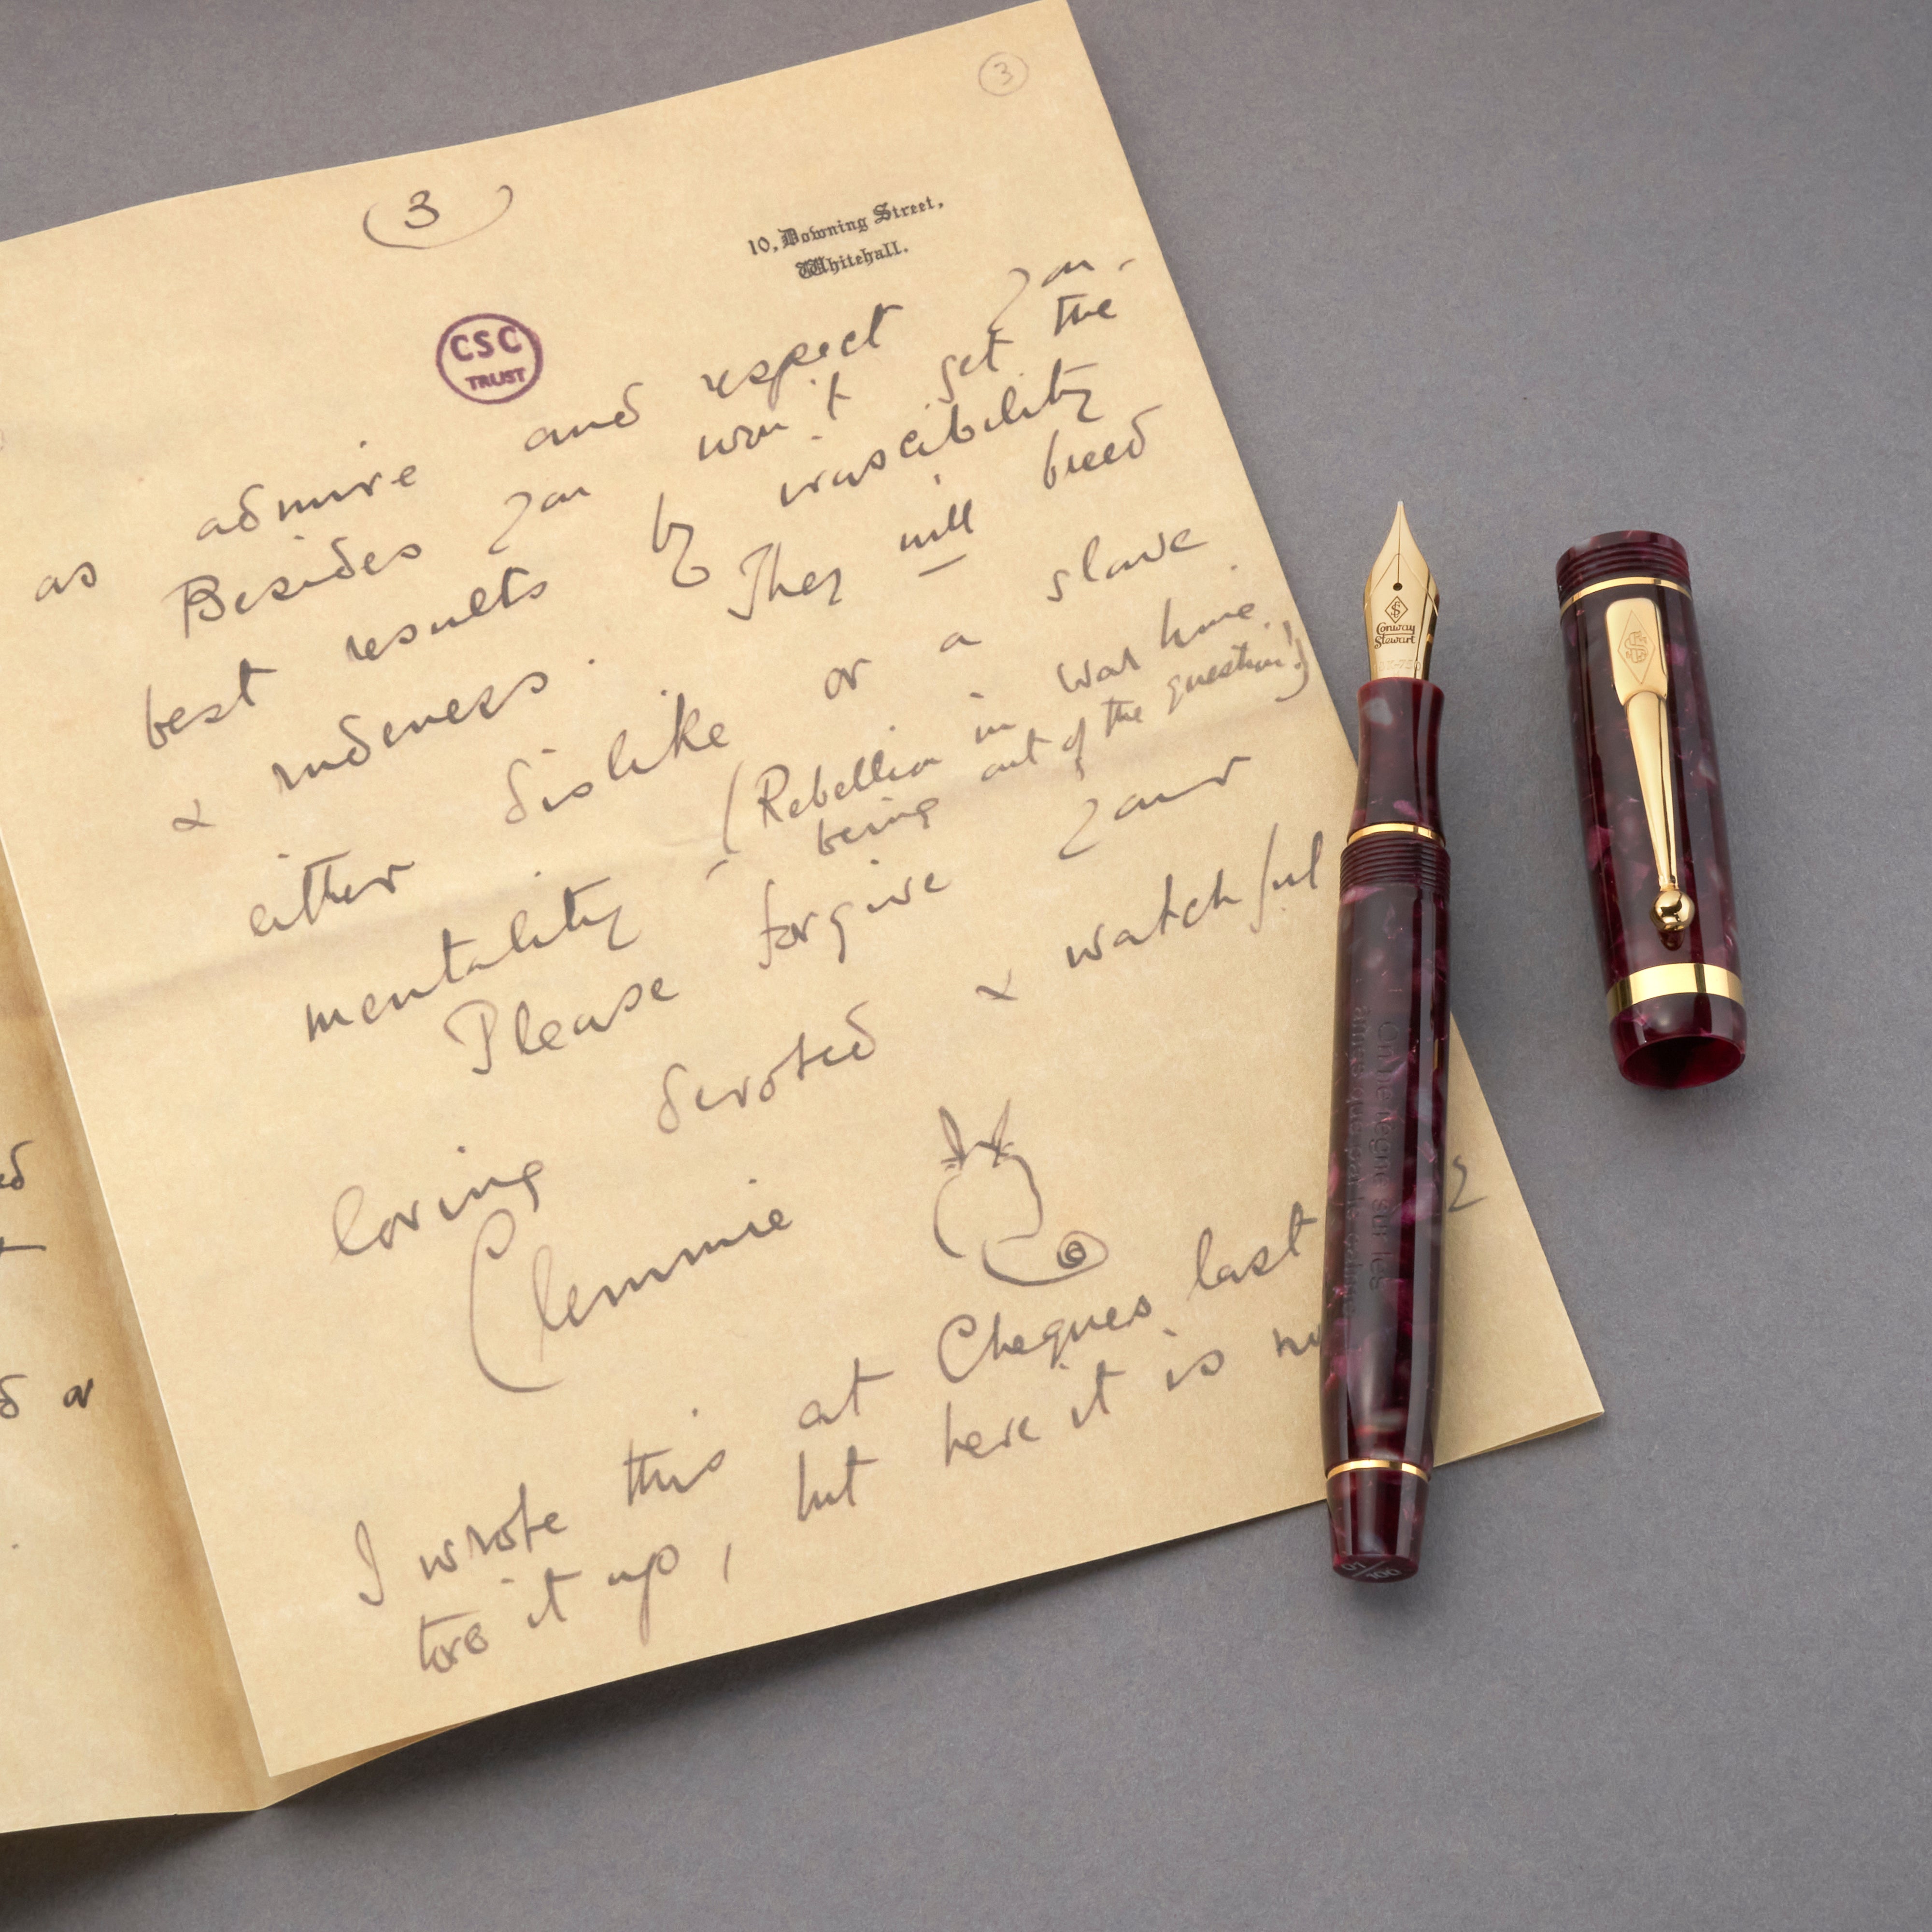 3
3
10, Downing Street,
Whitehall.
CSC
TRUST
as admire and respect you.
Besides you won't get the
best results by irascibility
& rudeness. They will breed
either dislike or a slave
mentality - (Rebellion in War time
being out of the question!)
Please forgive your
loving devoted & watchful
Clemmie
I wrote this at Cheques last
tore it up, but here it is
Conway
Stewart
On ne règne sur les
âmes que par le calme
01/100